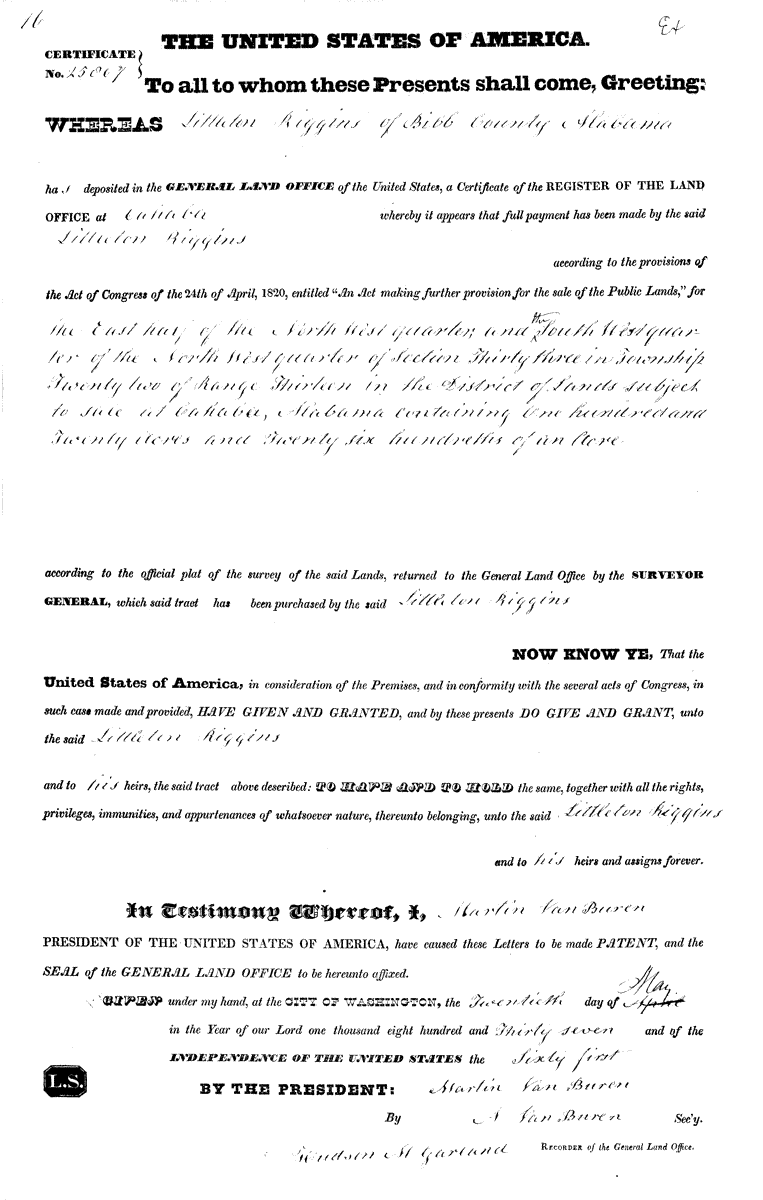 16
Ex
THE UNITED STATES OF AMERICA.
CERTIFICATE
No. 25867
To all to whom these Presents shall come, Greeting:
WHEREAS Littleton Riggins of Bibb County Alabama
ha s deposited in the GENERAL LAND OFFICE of the United States, a Certificate of the REGISTER OF THE LAND
OFFICE at Cahaba whereby it appears that full payment has been made by the said
Littleton Riggins
according to the provisions of
the Act of Congress of the 24th of April, 1820, entitled "An Act making further provision for the sale of the Public Lands," for
the East half of the North West quarter, and the South West quar-
ter of the North West quarter of Section Thirty three in Township
Twenty two of Range Thirteen in the District of Lands subject
to sale at Cahaba, Alabama containing One hundred and
Twenty Acres and Twenty six hundreths of an Acre
according to the official plat of the survey of the said Lands, returned to the General Land Office by the SURVEYOR
GENERAL, which said tract has been purchased by the said Littleton Riggins
NOW KNOW YE, That the
United States of America, in consideration of the Premises, and in conformity with the several acts of Congress, in
such case made and provided, HAVE GIVEN AND GRANTED, and by these presents DO GIVE AND GRANT, unto
the said Littleton Riggins
and to his heirs, the said tract above described: TO HAVE AND TO HOLD the same, together with all the rights,
privileges, immunities, and appurtenances of whatsoever nature, thereunto belonging, unto the said Littleton Riggins
and to his heirs and assigns forever.
In Testimony Whereof, I, Martin Van Buren
PRESIDENT OF THE UNITED STATES OF AMERICA, have caused these Letters to be made PATENT, and the
SEAL of the GENERAL LAND OFFICE to be hereunto affixed.
GIVEN under my hand, at the CITY OF WASHINGTON, the Twentieth day of April May
in the Year of our Lord one thousand eight hundred and Thirty seven and of the
INDEPENDENCE OF THE UNITED STATES the Sixty first
L.S.
BY THE PRESIDENT: Martin Van Buren
By A Van Buren Sec'y.
Hudson M Garland RECORDER of the General Land Office.